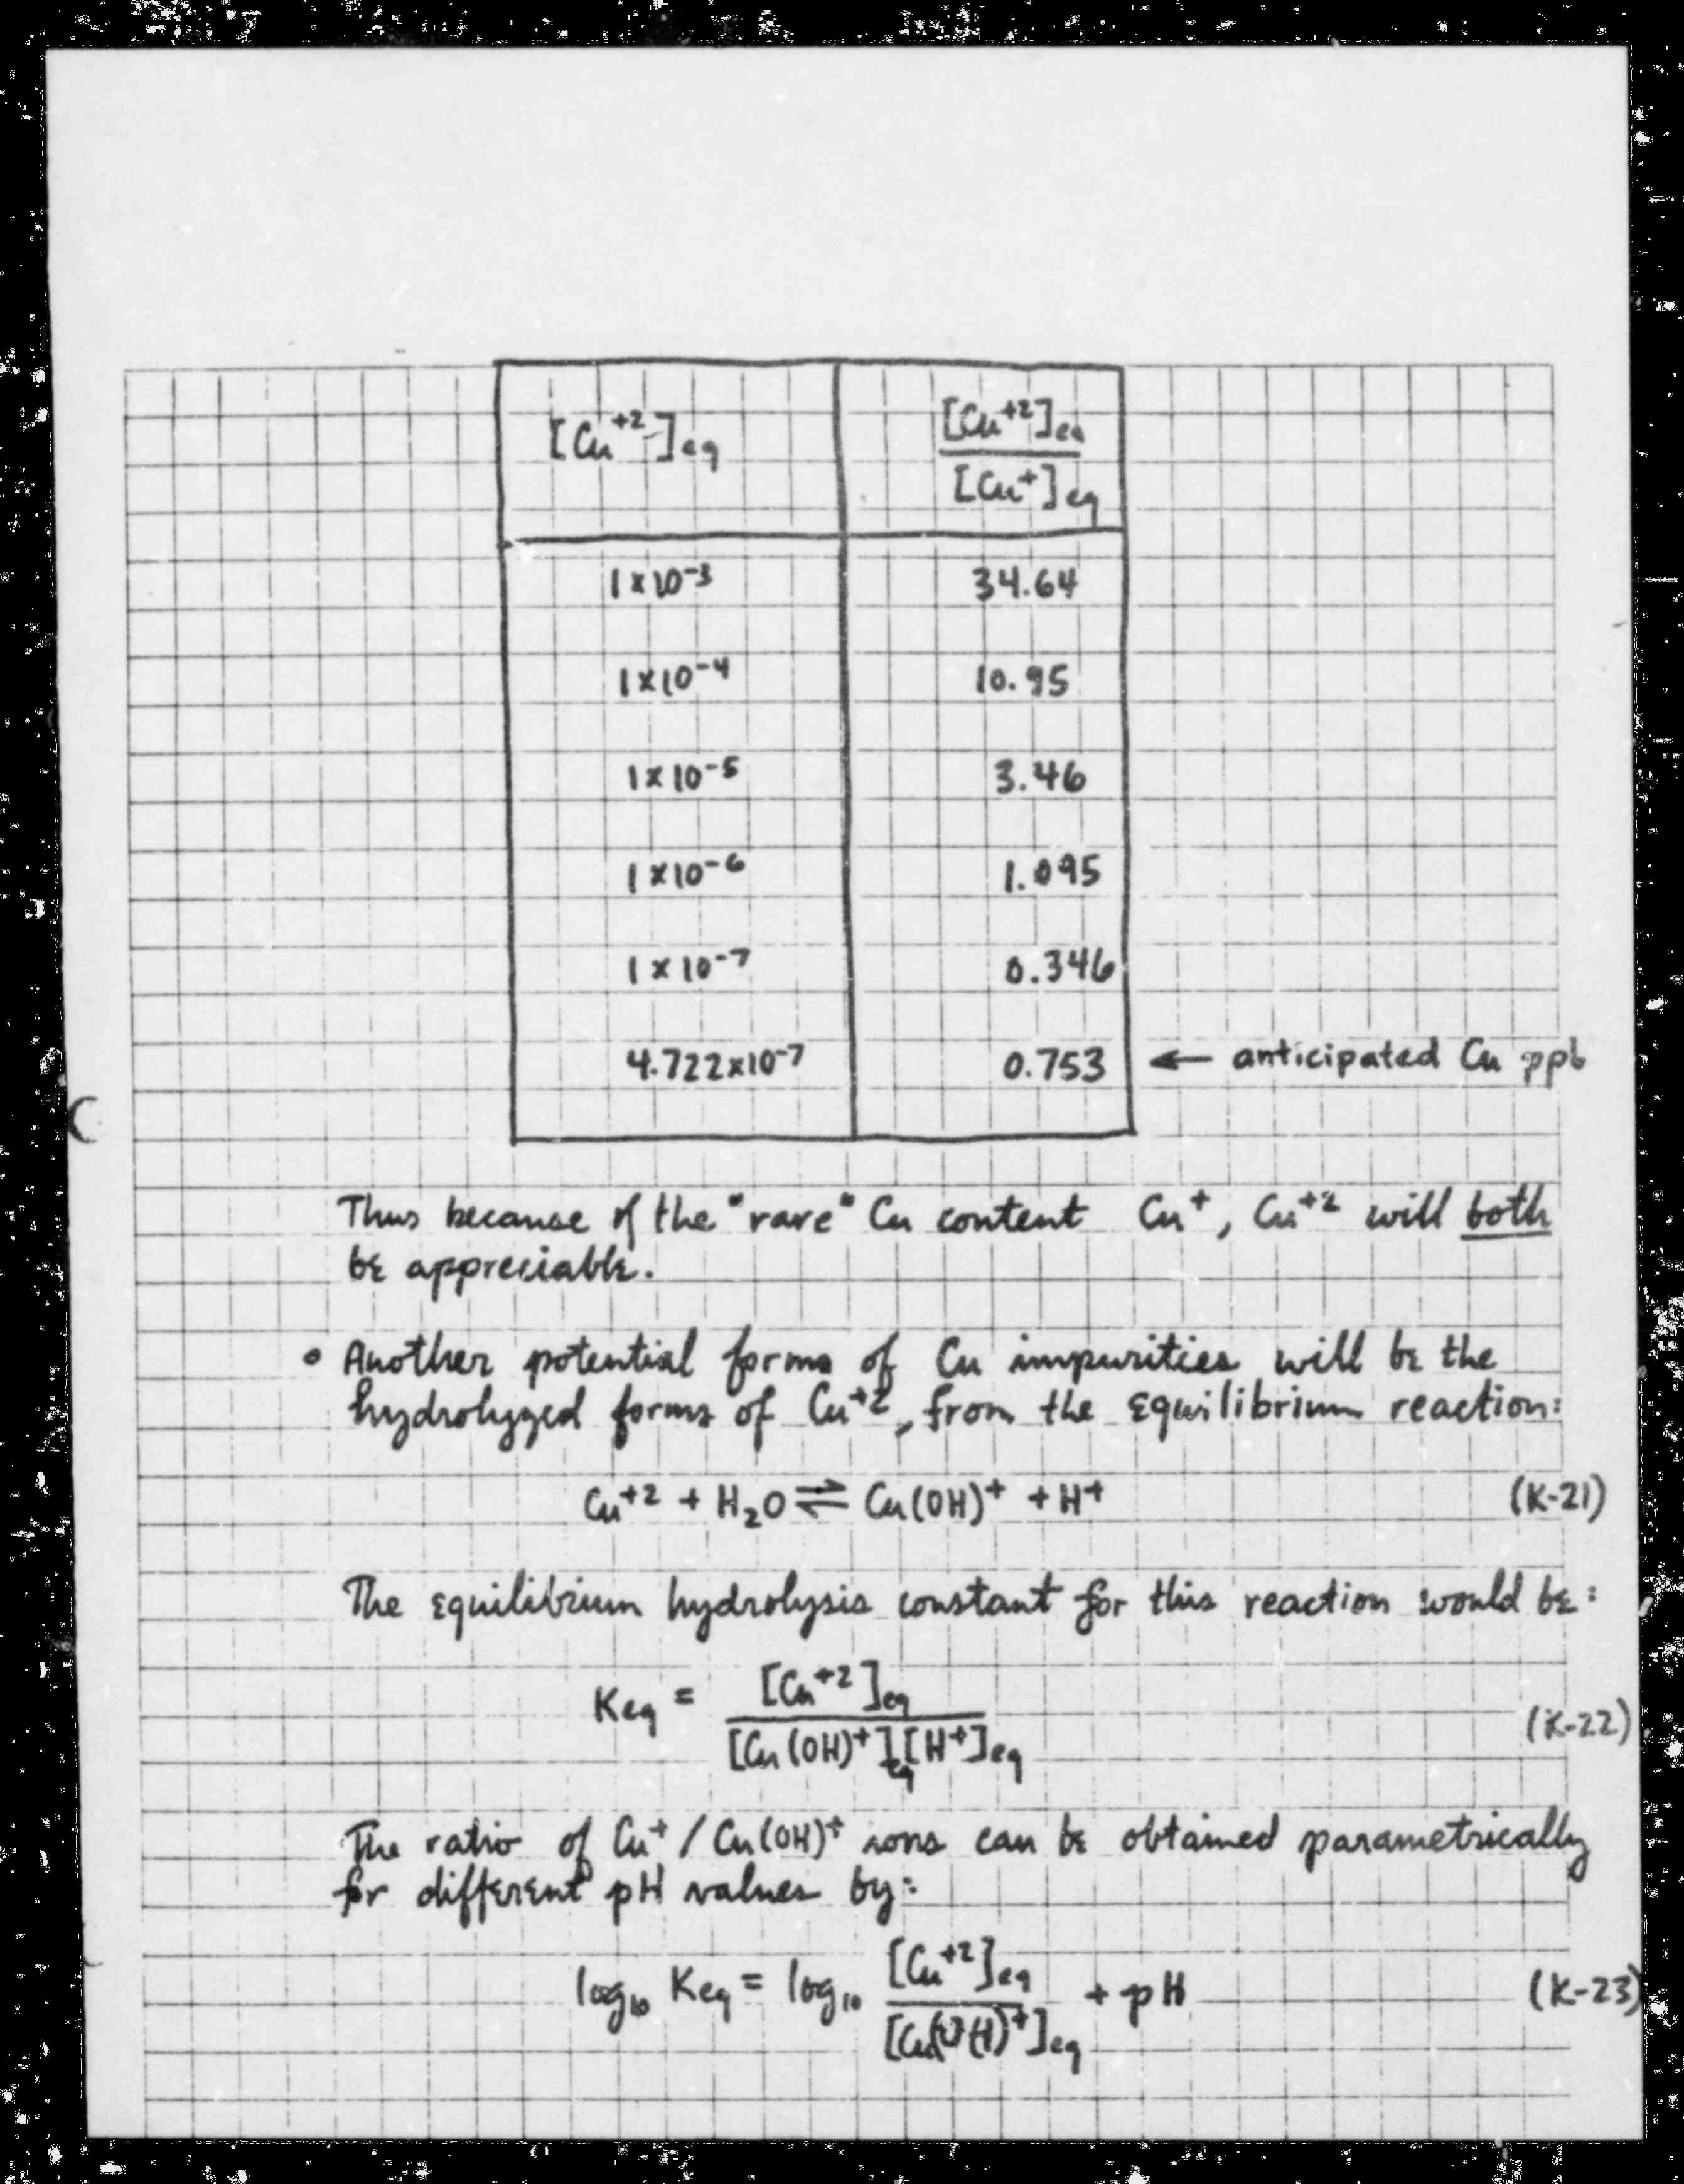 [Cu⁺²]eq    [Cu⁺²]eq / [Cu⁺]eq
1 x 10⁻³    34.64
1 x 10⁻⁴    10.95
1 x 10⁻⁵    3.46
1 x 10⁻⁶    1.095
1 x 10⁻⁷    0.346
4.722 x 10⁻⁷    0.753 ← anticipated Cu ppb
Thus because of the "rare" Cu content Cu⁺, Cu⁺² will both
be appreciable.
• Another potential forms of Cu impurities will be the
hydrolyzed forms of Cu⁺², from the equilibrium reaction:
Cu⁺² + H₂O ⇌ Cu(OH)⁺ + H⁺    (K-21)
The equilibrium hydrolysis constant for this reaction would be:
Keq = [Cu⁺²]eq / [Cu(OH)⁺]eq [H⁺]eq    (K-22)
The ratio of Cu⁺ / Cu(OH)⁺ ions can be obtained parametrically
for different pH values by:
log₁₀ Keq = log₁₀ [Cu⁺²]eq / [Cu(OH)⁺]eq + pH    (K-23)